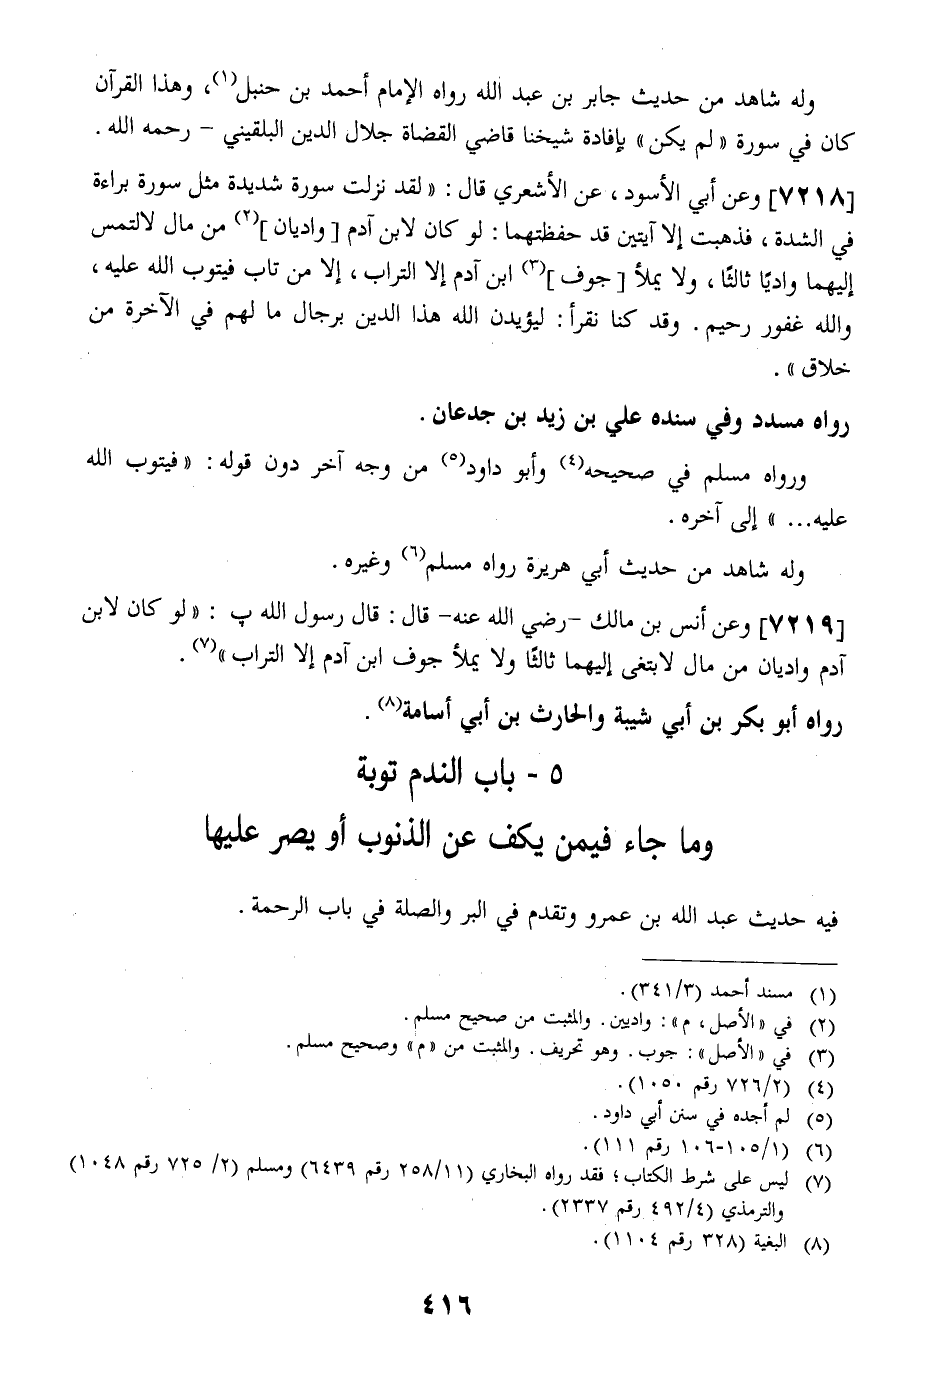 وله شاهد من حديث جابر بن عبد الله رواه الإمام أحمد بن حنبل(١)، وهذا القرآن
كان في سورة « لم يكن » بإفادة شيخنا قاضي القضاة جلال الدين البلقيني – رحمه الله .
[٧٢١٨] وعن أبي الأسود ، عن الأشعري قال : « لقد نزلت سورة شديدة مثل سورة براءة
في الشدة ، فذهبت إلا آيتين قد حفظتهما : لو كان لابن آدم [ واديان ](٢) من مال لالتمس
إليهما واديًا ثالثًا ، ولا يملأ [ جوف ](٣) ابن آدم إلا التراب ، إلا من تاب فيتوب الله عليه ،
والله غفور رحيم . وقد كنا نقرأ : ليؤيدن الله هذا الدين برجال ما لهم في الآخرة من
خلاق » .
رواه مسدد وفي سنده علي بن زيد بن جدعان .
ورواه مسلم في صحيحه(٤) وأبو داود(٥) من وجه آخر دون قوله : « فيتوب الله
عليه... » إلى آخره .
وله شاهد من حديث أبي هريرة رواه مسلم(٦) وغيره .
[٧٢١٩] وعن أنس بن مالك –رضي الله عنه– قال : قال رسول الله پ : « لو كان لابن
آدم واديان من مال لابتغى إليهما ثالثًا ولا يملأ جوف ابن آدم إلا التراب »(٧) .
رواه أبو بكر بن أبي شيبة والحارث بن أبي أسامة(٨) .
٥ - باب الندم توبة
وما جاء فيمن يكف عن الذنوب أو يصر عليها
فيه حديث عبد الله بن عمرو وتقدم في البر والصلة في باب الرحمة .
(١) مسند أحمد (٣٤١/٣).
(٢) في «الأصل ، م» : واديين . والمثبت من صحيح مسلم .
(٣) في «الأصل» : جوب . وهو تحريف . والمثبت من «م» وصحيح مسلم .
(٤) (٧٢٦/٢ رقم ١٠٥٠).
(٥) لم أجده في سنن أبي داود .
(٦) (١٠٥/١-١٠٦ رقم ١١١).
(٧) ليس على شرط الكتاب ؛ فقد رواه البخاري (٢٥٨/١١ رقم ٦٤٣٩) ومسلم (٢/ ٧٢٥ رقم ١٠٤٨)
والترمذي (٤٩٢/٤ رقم ٢٣٣٧).
(٨) البغية (٣٢٨ رقم ١١٠٤).
٤١٦